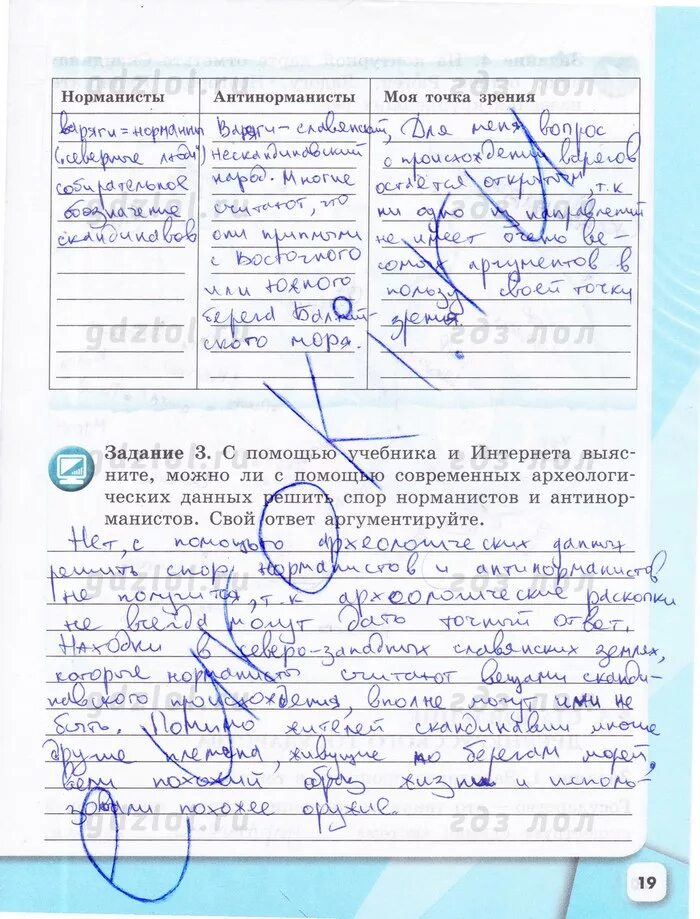 gdzlol.ru гдз лол
Норманисты
Антинорманисты
Моя точка зрения
варяги = норманны
("северные люди")
собирательное
обозначение
скандинавов
Варяги – славянский,
нескандиновский
народ. Многие
считают, что
они
с Восточного
или Южного
берега Балтий-
ского моря.
Для меня вопрос
о происхождении варягов
остаётся открытым, т.к
ни одно из направлений
не имеет очено ве-
сомых аргументов в
пользу своей точки
зрения.
gdzlol.ru гдз лол
gdzlol.ru гдз лол
Задание 3. С помощью учебника и Интернета выяс-
ните, можно ли с помощью современных археологи-
ческих данных решить спор норманистов и антинор-
манистов. Свой ответ аргументируйте.
Нет, с помощью археологических данных
решить спор норманистов и антинорманистов
не получится, т.к археологические раскопки
не всегда могут дать точный ответ.
Находки в северо-западных славянских землях,
которые норманисты считают вещами сканди-
навского происхождения, вполне могут ими не
быть. Помимо жителей скандинавии многие
другие племена, живущие по берегам морей,
вели похожий образ жизни и исполь-
зовали похожее оружие.
gdzlol.ru гдз лол
19